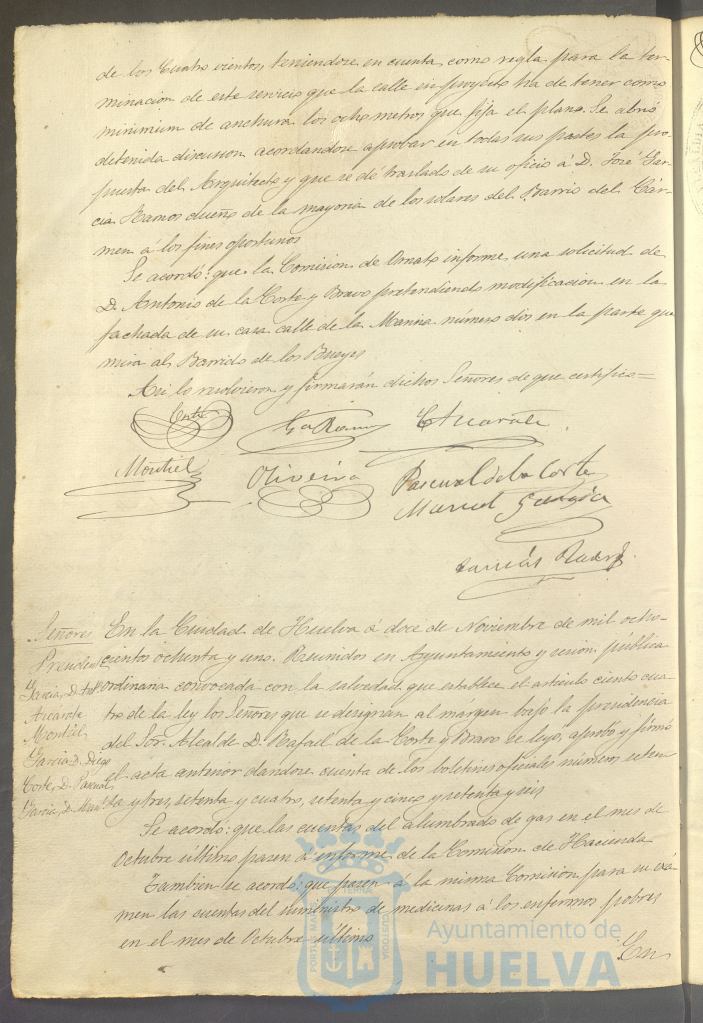 de los Cuatro vientos, teniendose en cuenta, como regla para la ter-
minacion de este servicio que la calle en proyecto ha de tener como
minimium de anchura los ocho metros que fija el plano. Se abrió
detenida discusion acordandose aprobar en todas sus partes la pro-
puesta del Arquitecto y que se dé traslado de su oficio á D. José Gar-
cia Ramos dueño de la mayoria de los solares del Barrio del Cár-
men á los fines oportunos
Se acordó: que la Comision de Ornato informe una solicitud de
D. Antonio de la Corte y Bravo pretendiendo modificacion en la
fachada de su casa calle de la Marina número dos en la parte que
mira al Barrido de los Bueyes
Asi lo resolvieron y firmarán dichos Señores de que certifico =
Corte
Ga Ramos
Alcarate
Montiel
Oliveira
Pascual de la Corte
Manuel Garcia
Señores
Presidente
Garcia, D. Anto
Alcarate
Montiel
Garcia D. Diego
Corte, D. Pascual
Garcia, D. Manl
En la Ciudad de Huelva á doce de Noviembre de mil ocho-
cientos ochenta y uno. Reunidos en Ayuntamiento y sesion pública
ordinaria convocada con la salvedad que establece el articulo ciento cua-
tro de la ley los Señores que se designan al márgen bajo la presidencia
del Sor. Alcalde D. Rafael de la Corte y Bravo se leyó, aprobó y firmó
el acta anterior dandose cuenta de los boletines oficiales números seten-
ta y tres, setenta y cuatro, setenta y cinco y setenta y seis
Se acordó: que las cuentas del alumbrado de gas en el mes de
Octubre último pasen á informe de la Comision de Hacienda
Tambien se acordó: que pasen á la misma Comision para su exá-
men las cuentas del suministro de medicinas á los enfermos pobres
en el mes de Octubre último
En
Ayuntamiento de
HUELVA